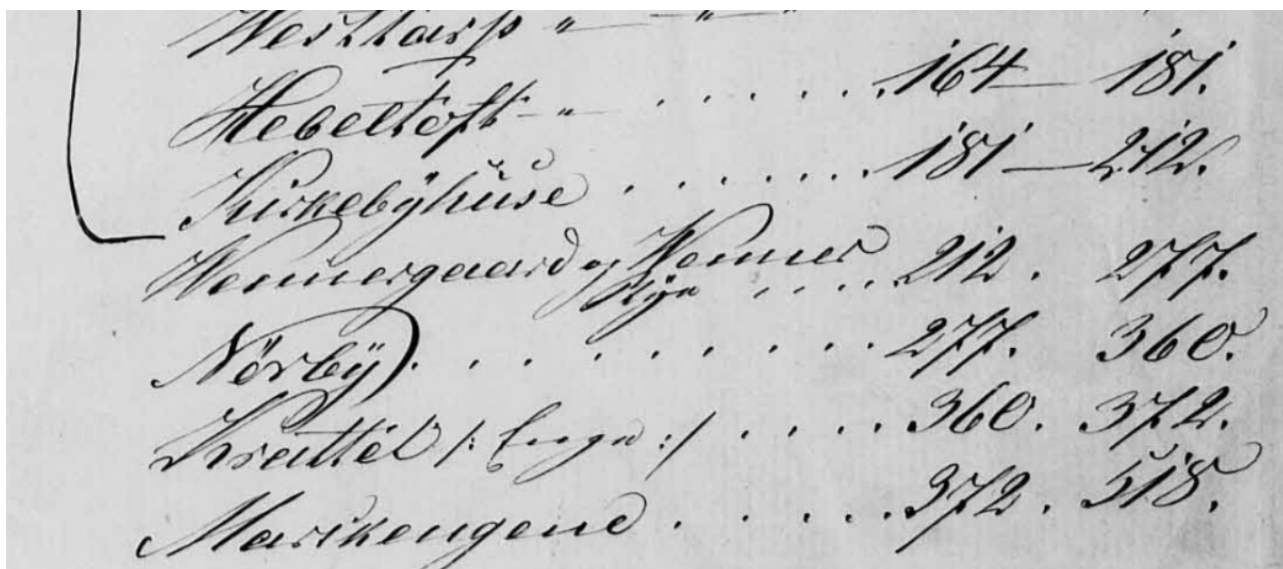 Vesttarp " — " —
Hebeltoft - " - . . . . . . . 164 — 181.
Kirkebÿhuse . . . . . . . 181 — 212.
Vennergaard og Venner
Bÿe . . . . 212 . 277.
Nörbÿ) . . . . . . . . 277. 360.
Krattet /: Enge :/ . . . . 360. 372.
Markengene . . . . . 372 . 518.